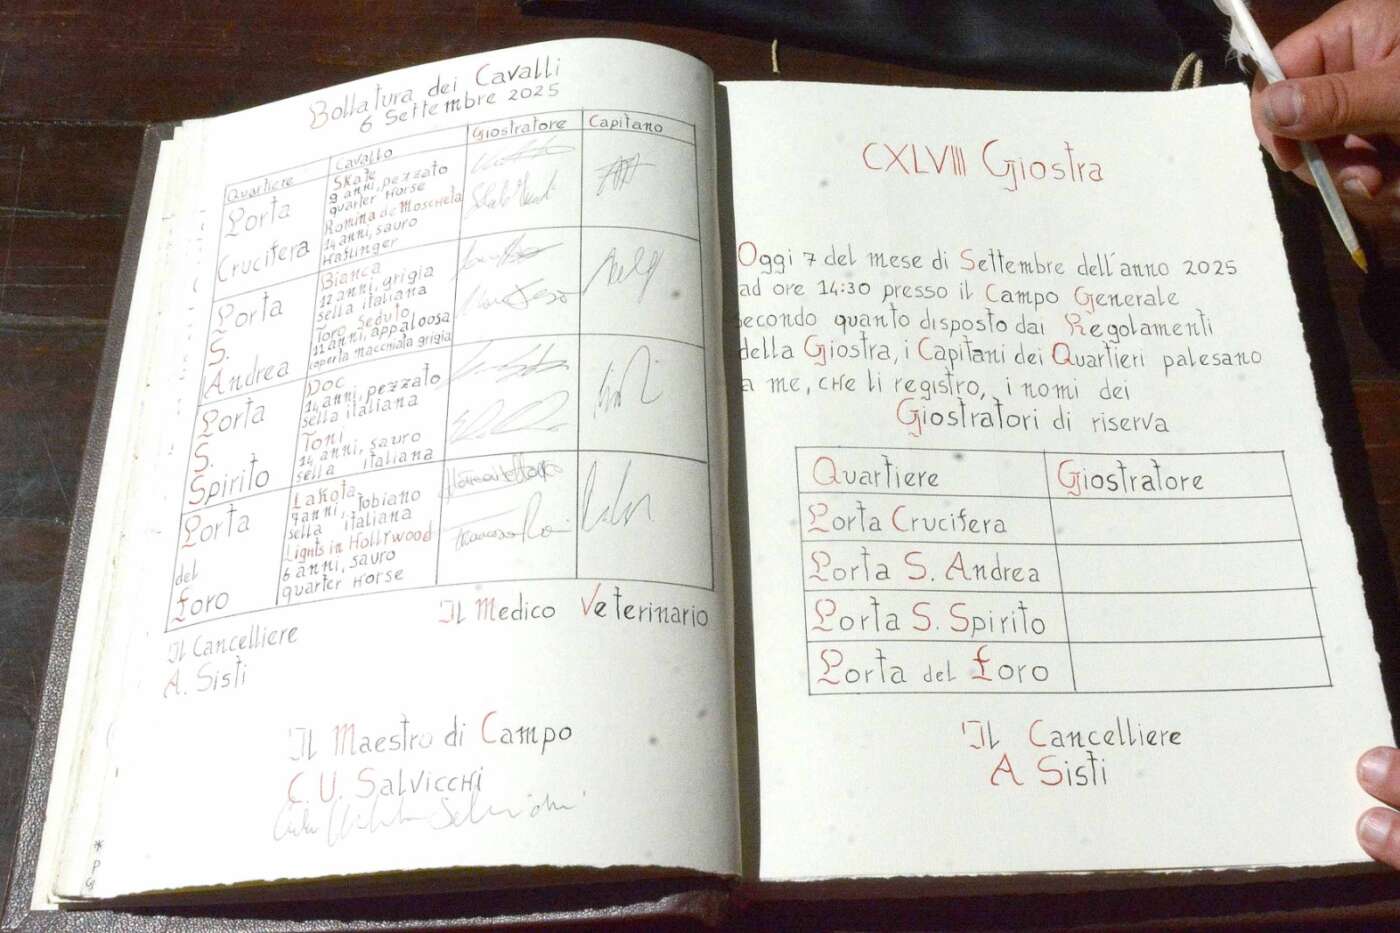 Bollatura dei Cavalli
6 Settembre 2025
Quartiere Cavallo Giostratore Capitano
Porta Crucifera
Skate
9 anni, pezzato
quarter Horse
Romina de Moscheta
14 anni, sauro
Haflinger
Porta S. Andrea
Bianca
12 anni, grigia
sella italiana
Toro Seduto
11 anni, appaloosa
coperta macchiata grigia
Porta S. Spirito
Doc
14 anni, pezzato
sella italiana
Toni
14 anni, sauro
sella italiana
Porta del Foro
Lakota
9 anni, tobiano
sella italiana
Lights in Hollywood
6 anni, sauro
quarter Horse
Il Medico Veterinario
Il Cancelliere
A. Sisti
Il Maestro di Campo
C. U. Salvicchi
CXLVIII Giostra
Oggi 7 del mese di Settembre dell'anno 2025
ad ore 14:30 presso il Campo Generale
secondo quanto disposto dai Regolamenti
della Giostra, i Capitani dei Quartieri palesano
a me, che li registro, i nomi dei
Giostratori di riserva
Quartiere Giostratore
Porta Crucifera
Porta S. Andrea
Porta S. Spirito
Porta del Foro
Il Cancelliere
A Sisti